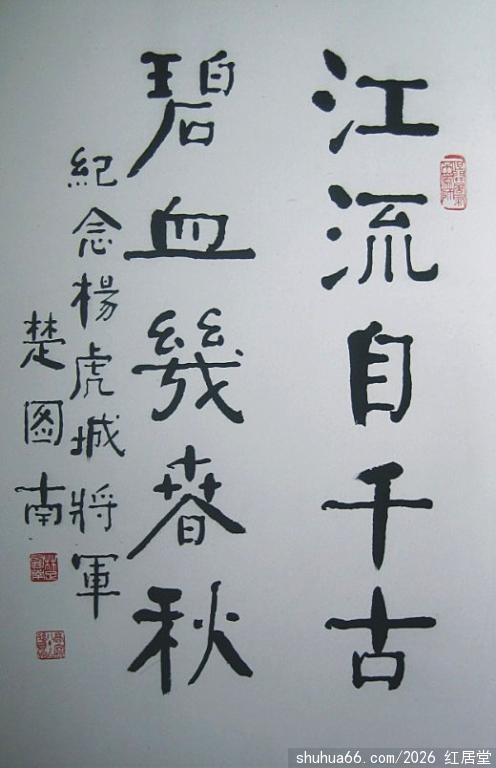 江流自千古
碧血幾春秋
紀念楊虎城將軍
楚图南
shuhua66.com/2026 红居堂